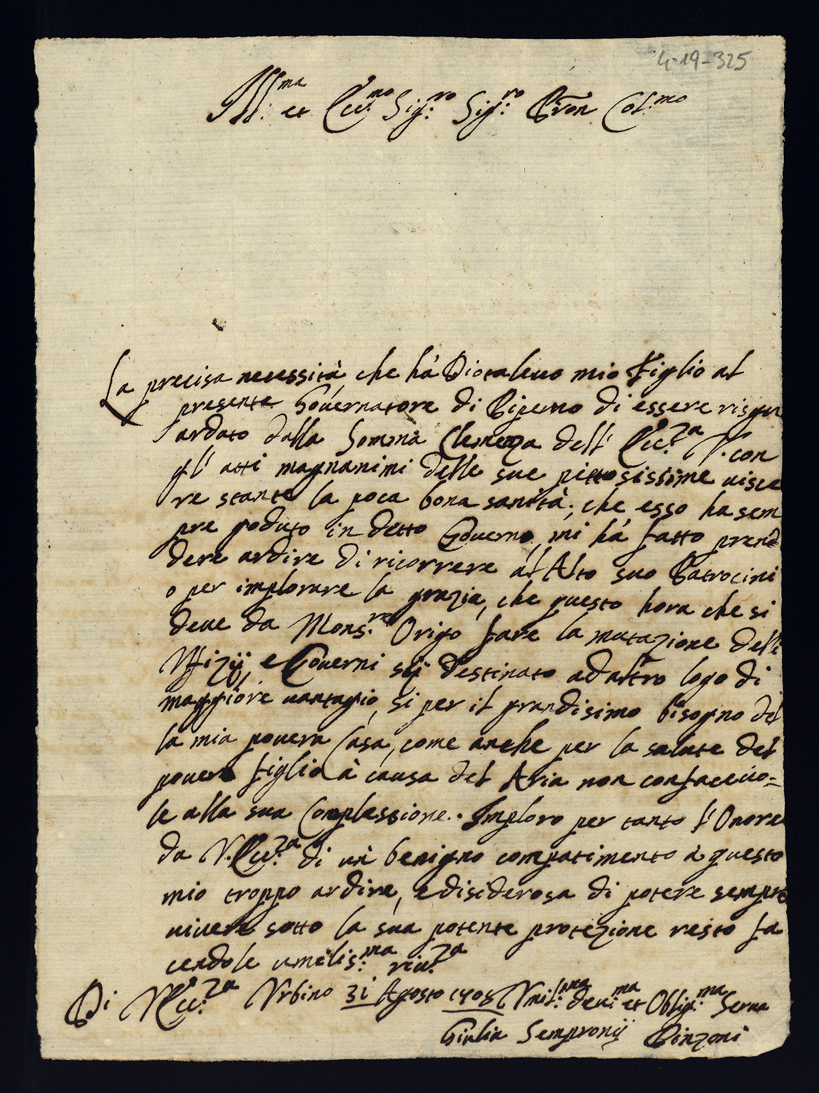 4-19-325
Ill:ma et Ecc:mo Sig:re Sig:re Pron Col:mo
La precisa necessità che hà Diotaleuo mio figlio al
presente Gouernatore di Piperno di essere risgu
ardato dalla Somma Clemenza dell' Ecc:za V. con
gl' atti magnanimi delle sue piettosissime uisce
re stante la poca bona sanità, che esso ha sem
pre goduto in detto Gouerno, mi hà fatto prend
dere ardire di ricorrere al Alto suo Patrocini
o per implorare la grazia, che questo hora che si
deue da Mons:re Origo fare la mutazione delli
Vffizij, e Gouerni sij destinato ad altro logo di
maggiore uantagio, si per il grandisimo bisogno del
la mia pouera Casa, come anche per la salute del
pouero figlio à causa del Aria non confaceuo=
le alla sua Complessione. Imploro per tanto l'Onore
da V. Ecc:za di un benigno compatimento à questo
mio troppo ardire, e disiderosa di potere sempre
uiuere sotto la sua potente protezione resto fa
cendole umilis:ma riu:za
Di V Ecc:za Vrbino 31 Agosto 1705 Vmil:ma deui:ma et Oblig:ma Serua
Giulia Sempronij Pinzoni